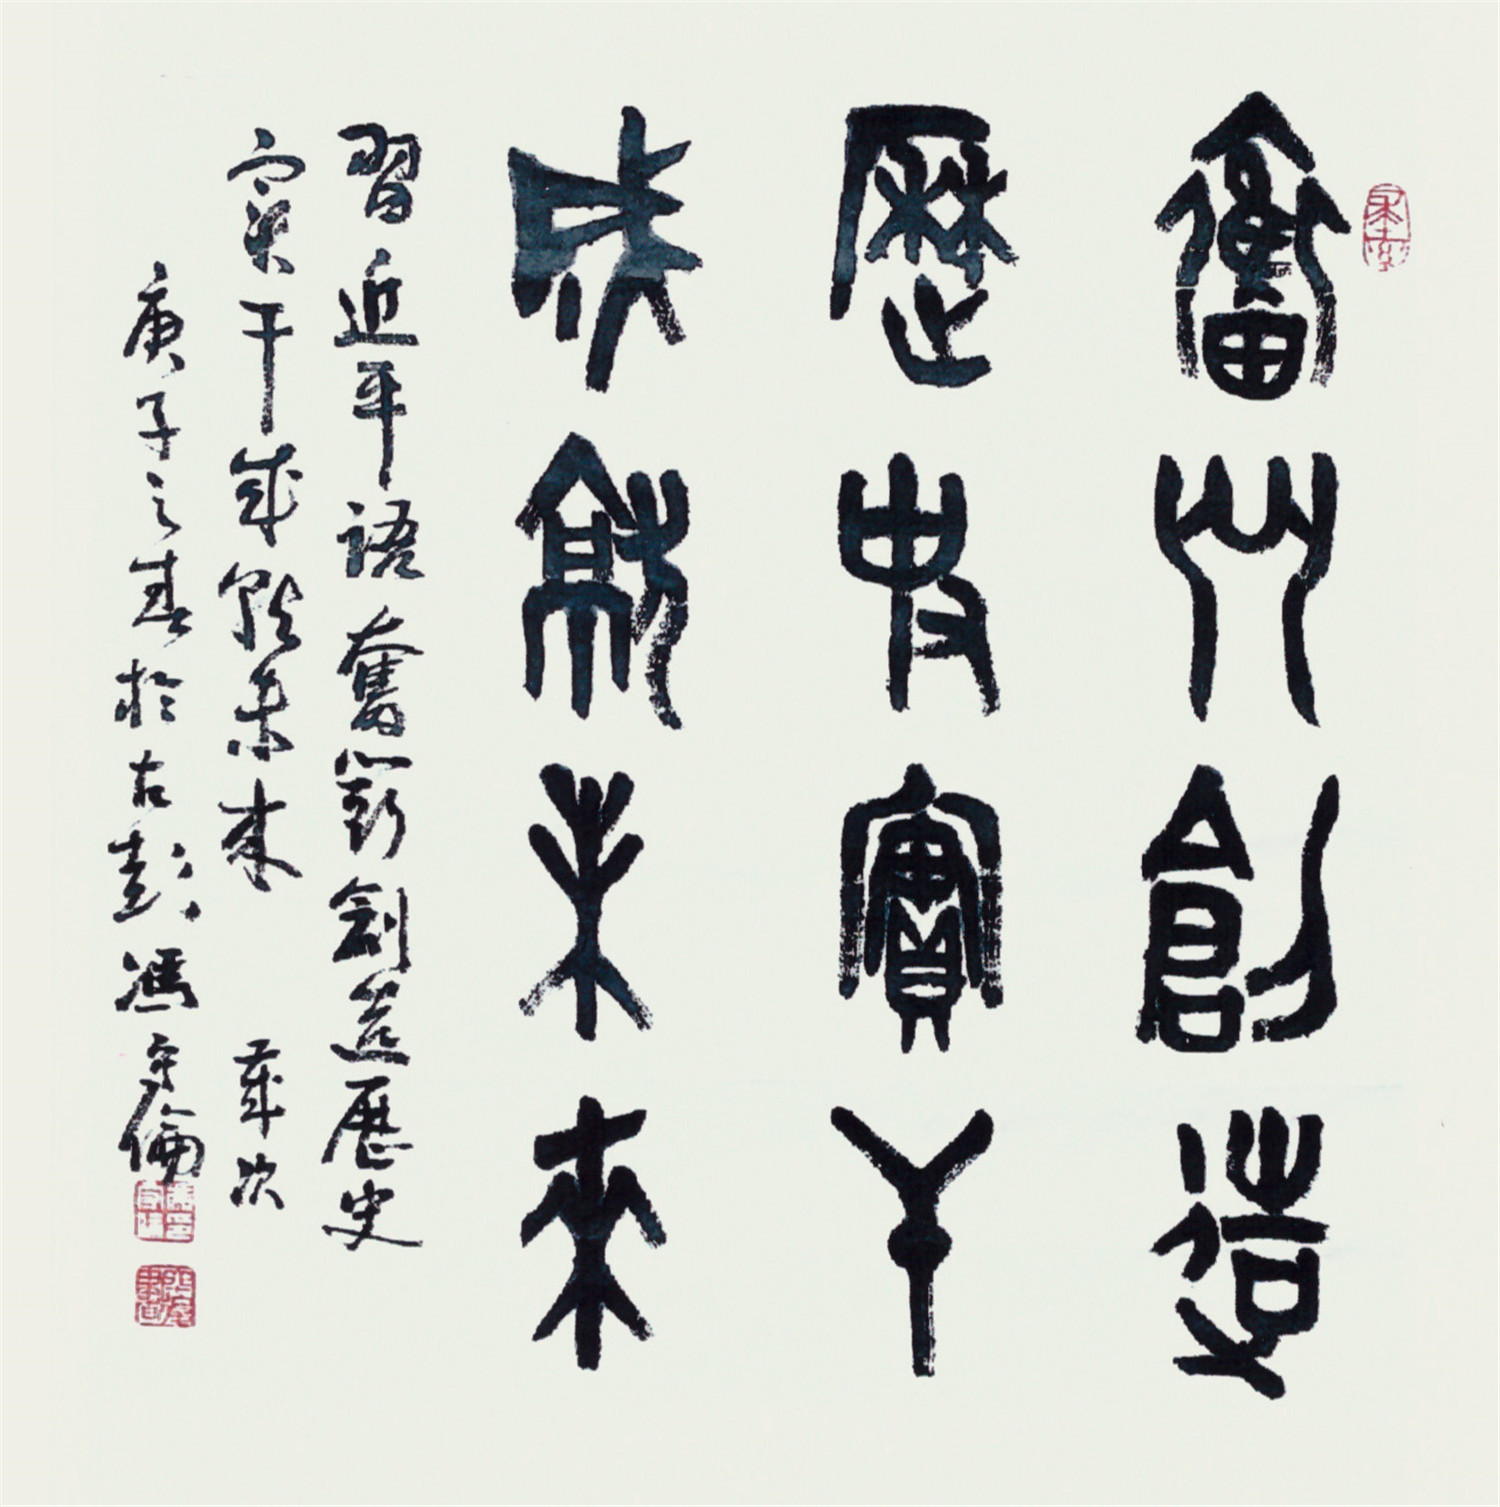 奮鬥創造
歷史實干
成就未來
習近平語奮鬭創造歷史
實干成就未來 歲次
庚子之春於古彭馮守倫